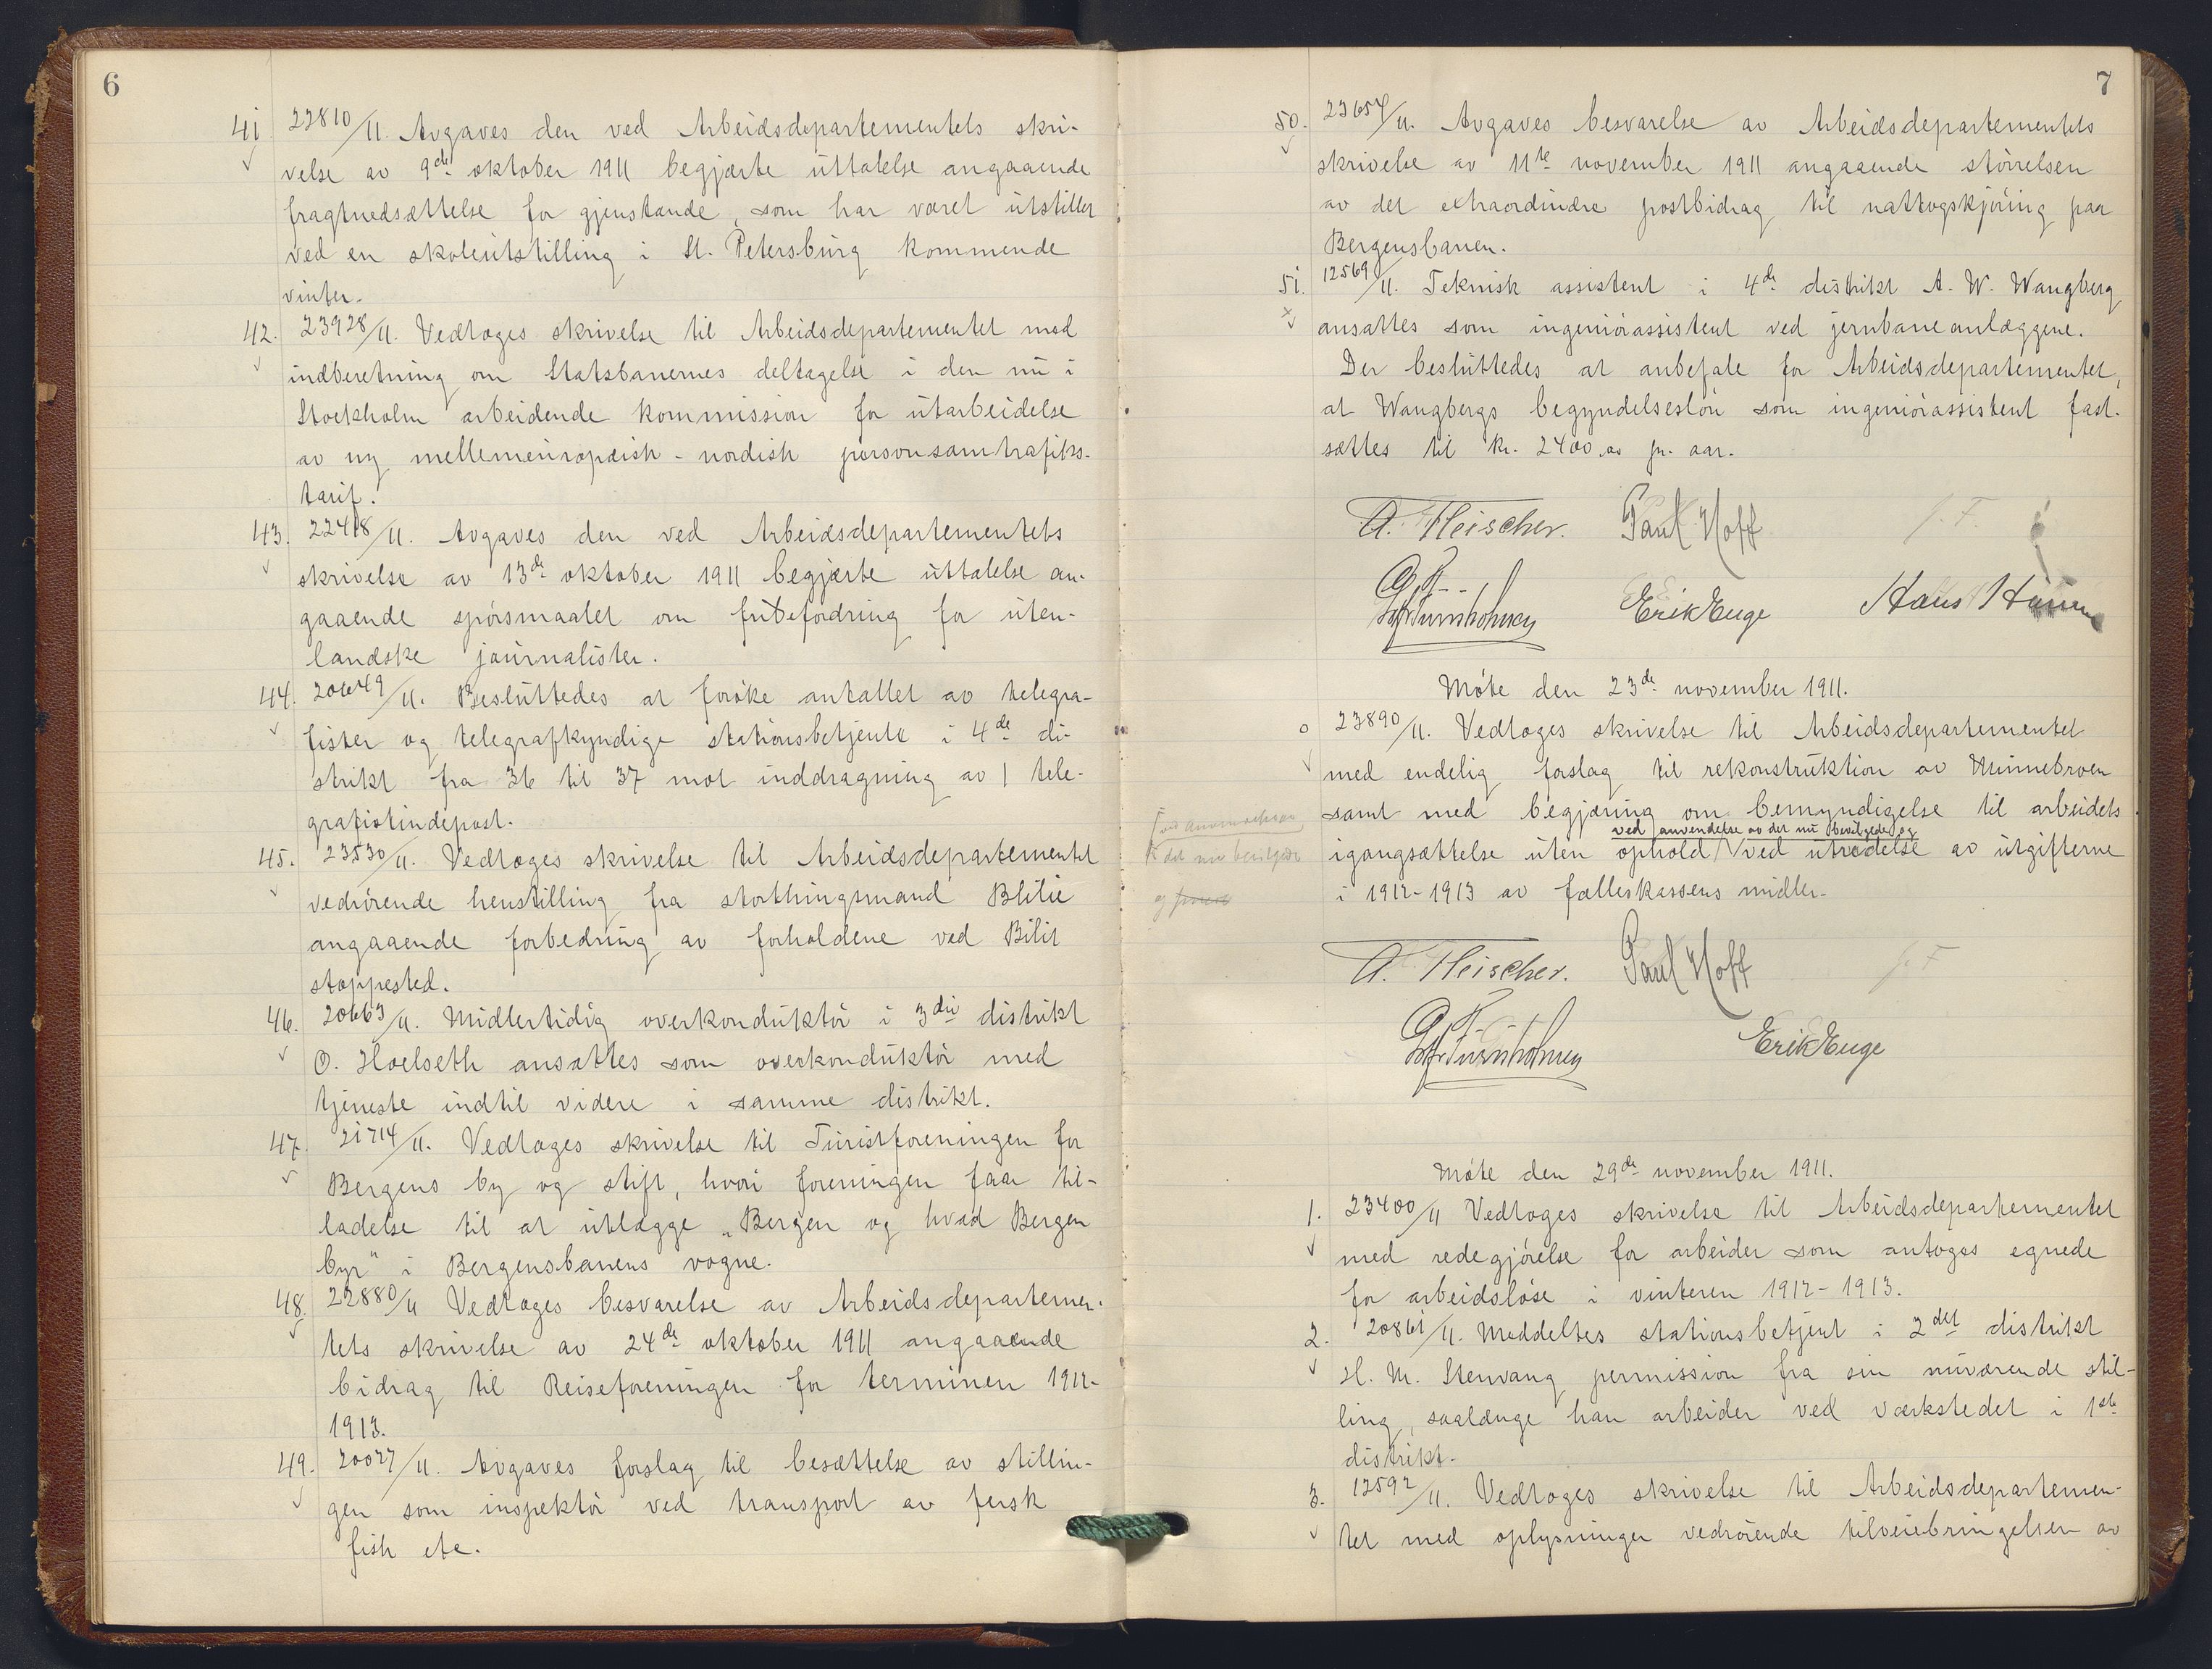 6
41. 22810/11. Avgaves den ved Arbeidsdepartementets skri-
velse av 9de oktober 1911 begjærte uttalelse angaaende
fragtnedsættelse for gjenstande, som har været utstillet
ved en skoleutstilling i St. Petersburg kommende
vinter.
42. 23928/11. Vedtoges skrivelse til Arbeidsdepartementet med
indberetning om Statsbanernes deltagelse i den nu i
Stockholm arbeidende kommission for utarbeidelse
av ny mellemeuropæisk-nordisk personsamtrafiks-
tarif.
43. 22418/11. Avgaves den ved Arbeidsdepartementets
skrivelse av 13de oktober 1911 begjærte uttalelse an-
gaaende spørsmaalet om fribefordring for uten-
landske journalister.
44. 20649/11. Besluttedes at forøke antallet av telegra-
fister og telegrafkyndige stationsbetjente i 4de di-
strikt fra 36 til 37 mot inddragning av 1 tele-
grafistindepost.
45. 23530/11. Vedtoges skrivelse til Arbeidsdepartementet
vedrørende henstilling fra storthingsmand Blilie
angaaende forbedring av forholdene ved Bilit
stoppested.
46. 20663/11. Midlertidig overkonduktør i 3die distrikt
O. Hoelseth ansattes som overkonduktør med
tjeneste indtil videre i samme distrikt.
47. 21714/11. Vedtoges skrivelse til Turistforeningen for
Bergens by og stift, hvori foreningen faar til-
ladelse til at utlægge „Bergen og hvad Bergen
byr" i Bergensbanens vogne.
48. 22880/11 Vedtoges besvarelse av Arbeidsdepartemen-
tets skrivelse av 24de oktober 1911 angaaende
bidrag til Reiseforeningen for terminen 1912-
1913.
49. 20027/11. Avgaves forslag til besættelse av stillin-
gen som inspektør ved transport av fersk
fisk etc.
7
50. 23654/11. Avgaves besvarelse av Arbeidsdepartementets
skrivelse av 11te november 1911 angaaende størrelsen
av det extraordinære postbidrag til nattogskjøring paa
Bergensbanen.
51. 12569/11. Teknisk assistent i 4de distrikt A. W. Wangberg
ansattes som ingeniørassistent ved jernbaneanlæggene.
Der besluttedes at anbefale for Arbeidsdepartementet,
at Wangbergs begyndelsesløn som ingeniørassistent fast-
sættes til kr. 2400.00 pr. aar.
A. Fleischer. Paul Hoff J. F
Erik Enge Hans Hansen
Møte den 23de november 1911.
23890/11. Vedtoges skrivelse til Arbeidsdepartementet
med endelig forslag til rekonstruktion av Minnebroen
samt med begjæring om bemyndigelse til arbeidets
ved anvendelse av det nu bevilgede og
igangsættelse uten ophold / ved utredelse av utgifterne
i 1912-1913 av fælleskassens midler.
det nu bevilgede
og
A. Fleischer. Paul Hoff J. F
Erik Enge
Møte den 29de november 1911.
1. 23400/11 Vedtoges skrivelse til Arbeidsdepartementet
med redegjørelse for arbeider som antoges egnede
for arbeidsløse i vinteren 1912-1913.
2. 20861/11. Meddeltes stationsbetjent i 2det distrikt
H. M. Stenvang permission fra sin nuværende stil-
ling, saalænge han arbeider ved værkstedet i 1ste
distrikt.
3. 12592/11. Vedtoges skrivelse til Arbeidsdepartemen-
tet med oplysninger vedrørende tilveiebringelsen av